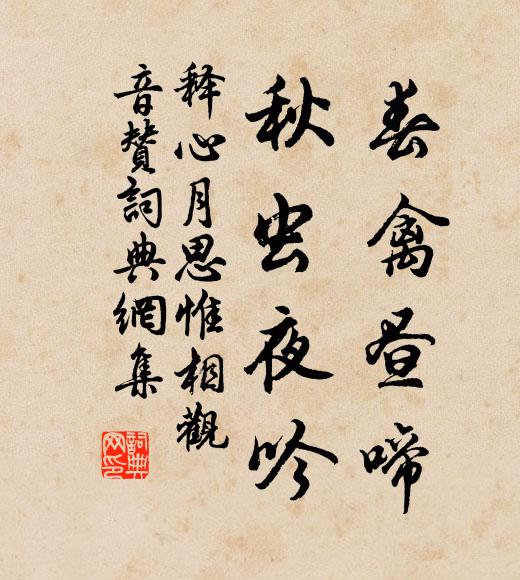 春禽昼啼
秋虫夜吟
释心月思惟相觀
音贊詞典網集
詞典
网印